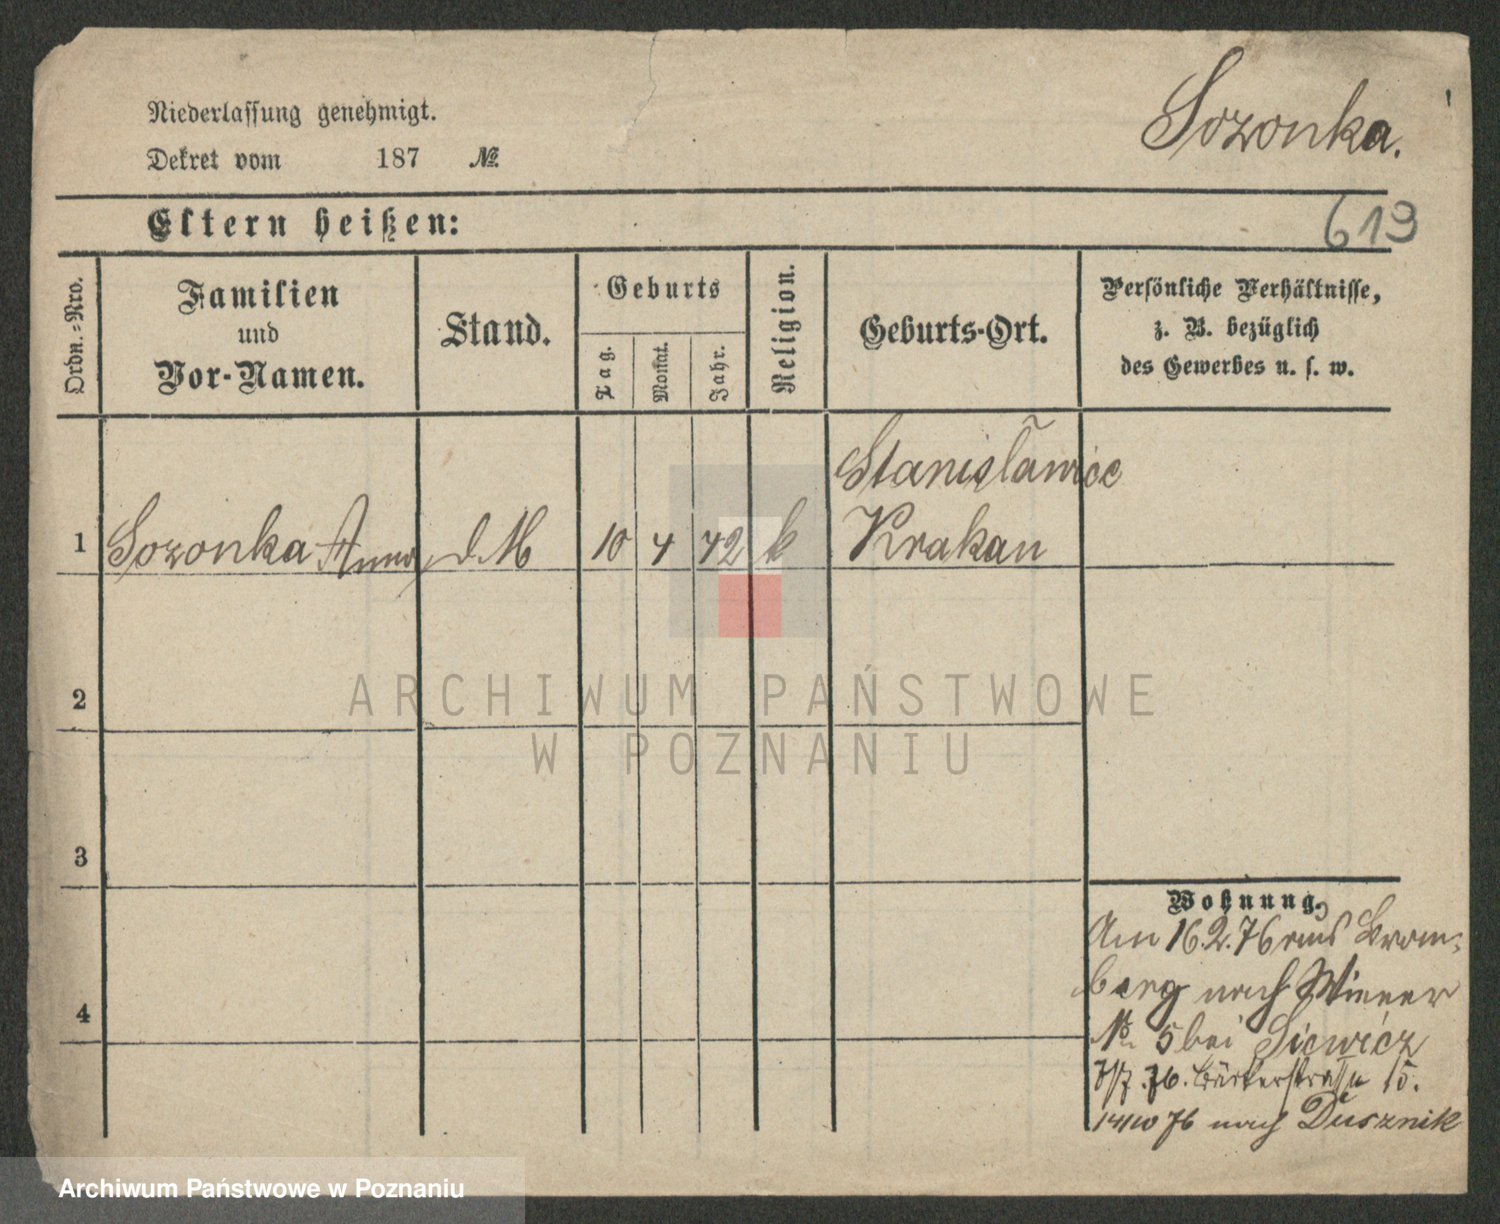 Niederlassung genehmigt.
Sozonka.
Dekret vom 187 №
Eltern heißen:
619
Ordn.-Nro.
Familien
und
Vor-Namen.
Stand.
Geburts
Tag.
Monat.
Jahr.
Religion.
Geburts-Ort.
Persönliche Verhältnisse,
z. B. bezüglich
des Gewerbes u. s. w.
Stanisławice
1 Sozonka Anna d. M 10 4 42 k Krakau
ARCHIWUM PAŃSTWOWE
W POZNANIU
2
3
4
Wohnung.
Am 16.2.76 aus Brom-
berg nach Wiener
№ 5 bei Siewicz
7/7.76. Bäckerstraße 15.
14/10 76 nach Dusznik
Archiwum Państwowe w Poznaniu